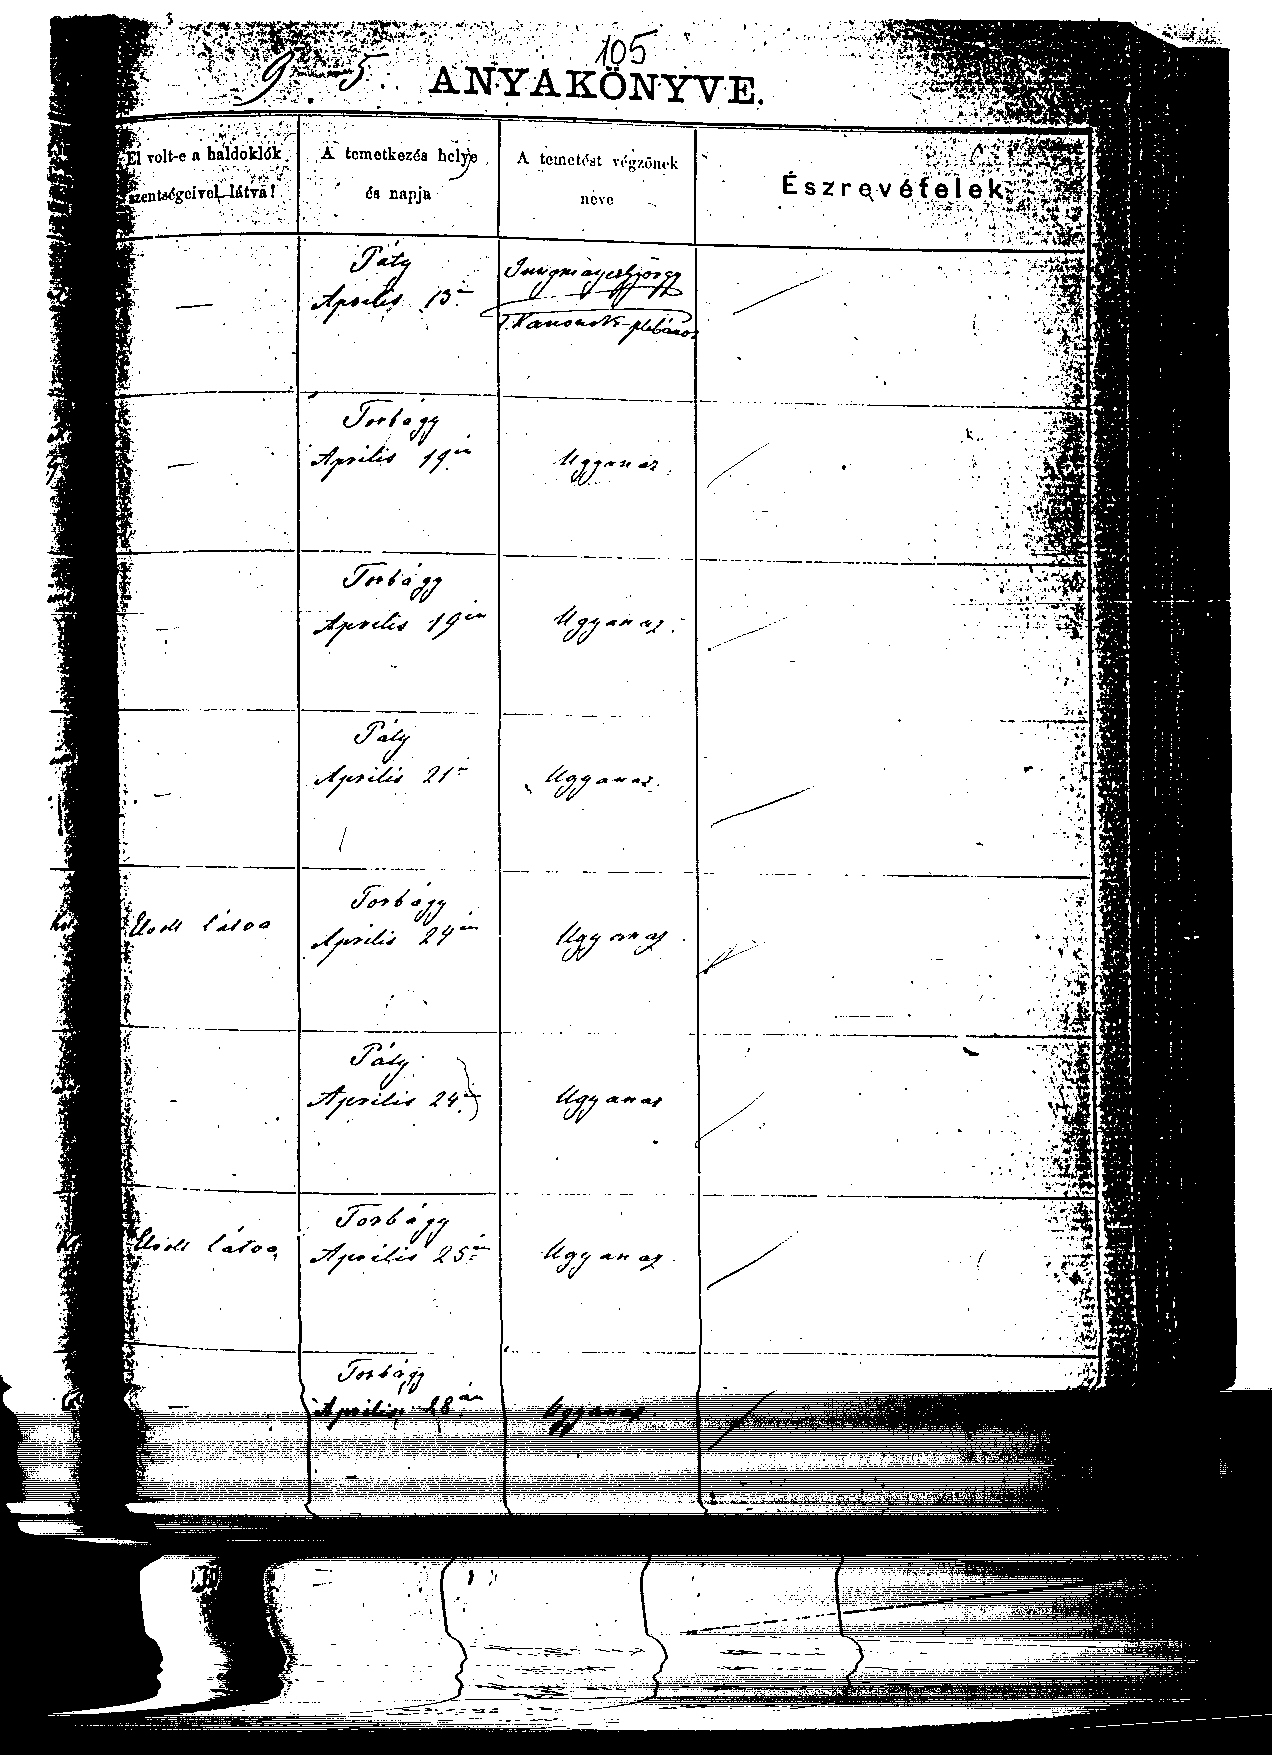 105
9 5. ANYAKÖNYVE.
El volt-e a haldoklók
szentségeivel látva!
A temetkezés helye
és napja
A temetést végzőnek
neve
Észrevételek
Páty
Április 13
plébános
Torbágy
Április 19én
Ugyanaz
Torbágy
Április 19én
Ugyanaz
Páty
Április 21
Ugyanaz
Torbágy
látva
Április 24én
Ugyanaz
Páty
Április 24
Ugyanaz
Torbágy
látva
Április 25
Ugyanaz
Torbágy
Április 28án
Ugyanaz